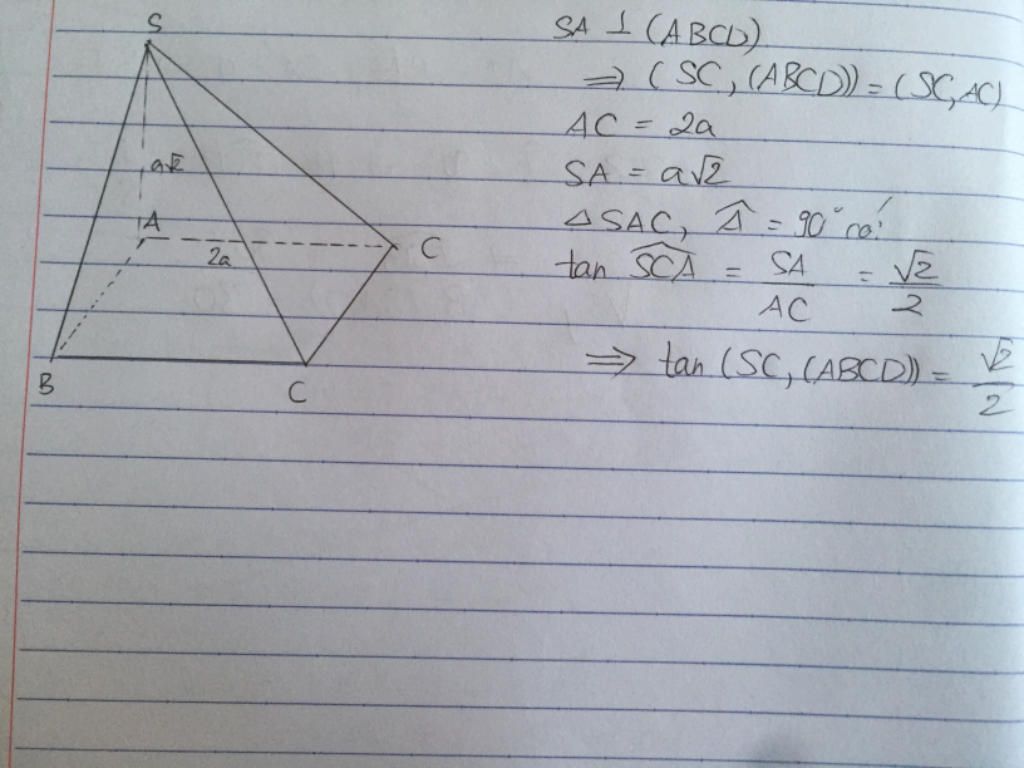 S
a√2
A
2a
C
B
C
SA ⊥ (ABCD)
⇒ (SC, (ABCD)) = (SC, AC)
AC = 2a
SA = a√2
△SAC, Â = 90° có:
tan SCA = SA / AC = √2 / 2
⇒ tan (SC, (ABCD)) = √2 / 2